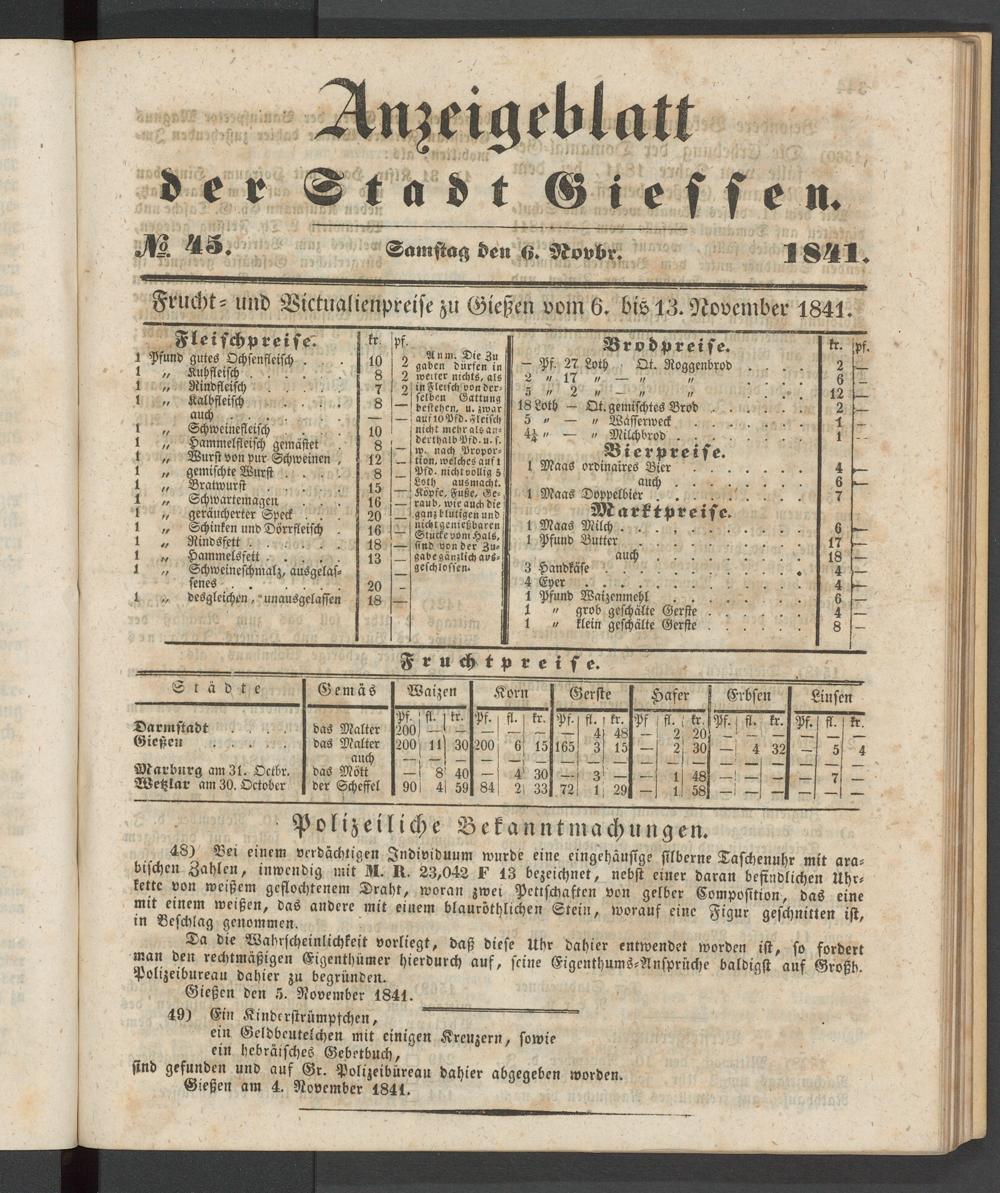 Anzeigeblatt
der Stadt Giessen.
No. 45. Samstag den 6. Novbr. 1841.
Frucht- und Victualienpreise zu Gießen vom 6. bis 13. November 1841.
Fleischpreise. kr. pf.
1 Pfund gutes Ochsenfleisch . . 10 2
1 „ Kuhfleisch . . . 8 2
1 „ Rindfleisch . . . 7 2
1 „ Kalbfleisch . . . 8 —
auch . . . — —
1 „ Schweinefleisch . . 10 —
1 „ Hammelfleisch gemästet . 8 —
1 „ Wurst von pur Schweinen . 12 —
1 „ gemischte Wurst . . 8 —
1 „ Bratwurst . . . 15 —
1 „ Schwartemagen . . 16 —
1 „ geräucherter Speck . . 20 —
1 „ Schinken und Dörrfleisch . 16 —
1 „ Rindsfett . . . 18 —
1 „ Hammelsfett . . . 13 —
1 „ Schweineschmalz, ausgelas-
senes . . . 20 —
1 „ desgleichen, unausgelassen 18 —
Anm. Die Zu
gaben dürfen in
weiter nichts, als
in Fleisch von der-
selben Gattung
bestehen, u. zwar
auf 10 Pfd. Fleisch
nicht mehr als an-
derthalb Pfd. u. s.
w. nach Propor-
tion, welches auf 1
Pfd. nicht völlig 5
Loth ausmacht.
Köpfe, Füße, Ge-
raub, wie auch die
ganz blutigen und
nicht genießbaren
Stücke vom Hals,
sind von der Zu-
gabe gänzlich aus-
geschlossen.
Brodpreise. kr. pf.
— Pf. 27 Loth Qt. Roggenbrod . . 2 —
2 „ 17 „ — „ „ . . 6 —
5 „ 2 „ — „ „ . . 12 —
18 Loth — Qt. gemischtes Brod . . 2 —
5 „ — „ Wasserweck . . 1 —
4½ „ — „ Milchbrod . . 1 —
Bierpreise.
1 Maas ordinaires Bier . . 4 —
auch . . 6 —
1 Maas Doppelbier . . 7
Marktpreise.
1 Maas Milch . . 6 —
1 Pfund Butter . . 17 —
auch . . 18 —
3 Handkäse . . 4 —
4 Eyer . . 4 —
1 Pfund Waizenmehl . . 6 —
1 „ grob geschälte Gerste . . 4 —
1 „ klein geschälte Gerste . . 8 —
Fruchtpreise.
Städte Gemäs Waizen Korn Gerste Hafer Erbsen Linsen
Pf. fl. kr. Pf. fl. kr. Pf. fl. kr. Pf fl. kr. Pf. fl. kr. Pf. fl. kr.
Darmstadt . . . das Malter 200 — — — — — — 4 48 — 2 20 — — — — — —
Gießen . . . das Malter 200 11 30 200 6 15 165 3 15 — 2 30 — 4 32 — 5 4
auch — — — — — — — — — — — — — — — — — —
Marburg am 31. Octbr. das Mött — 8 40 — 4 30 — 3 — — 1 48 — — — — 7 —
Wetzlar am 30. October der Scheffel 90 4 59 84 2 33 72 1 29 — 1 58 — — — — — —
Polizeiliche Bekanntmachungen.
48) Bei einem verdächtigen Individuum wurde eine eingehäusige silberne Taschenuhr mit ara-
bischen Zahlen, inwendig mit M. R. 23,042 F 13 bezeichnet, nebst einer daran befindlichen Uhr-
kette von weißem geflochtenem Draht, woran zwei Pettschaften von gelber Composition, das eine
mit einem weißen, das andere mit einem blauröthlichen Stein, worauf eine Figur geschnitten ist,
in Beschlag genommen.
Da die Wahrscheinlichkeit vorliegt, daß diese Uhr dahier entwendet worden ist, so fordert
man den rechtmäßigen Eigenthümer hierdurch auf, seine Eigenthums-Ansprüche baldigst auf Großh.
Polizeibureau dahier zu begründen.
Gießen den 5. November 1841.
49) Ein Kinderstrümpfchen,
ein Geldbeutelchen mit einigen Kreuzern, sowie
ein hebräisches Gebetbuch,
sind gefunden und auf Gr. Polizeibüreau dahier abgegeben worden.
Gießen am 4. November 1841.